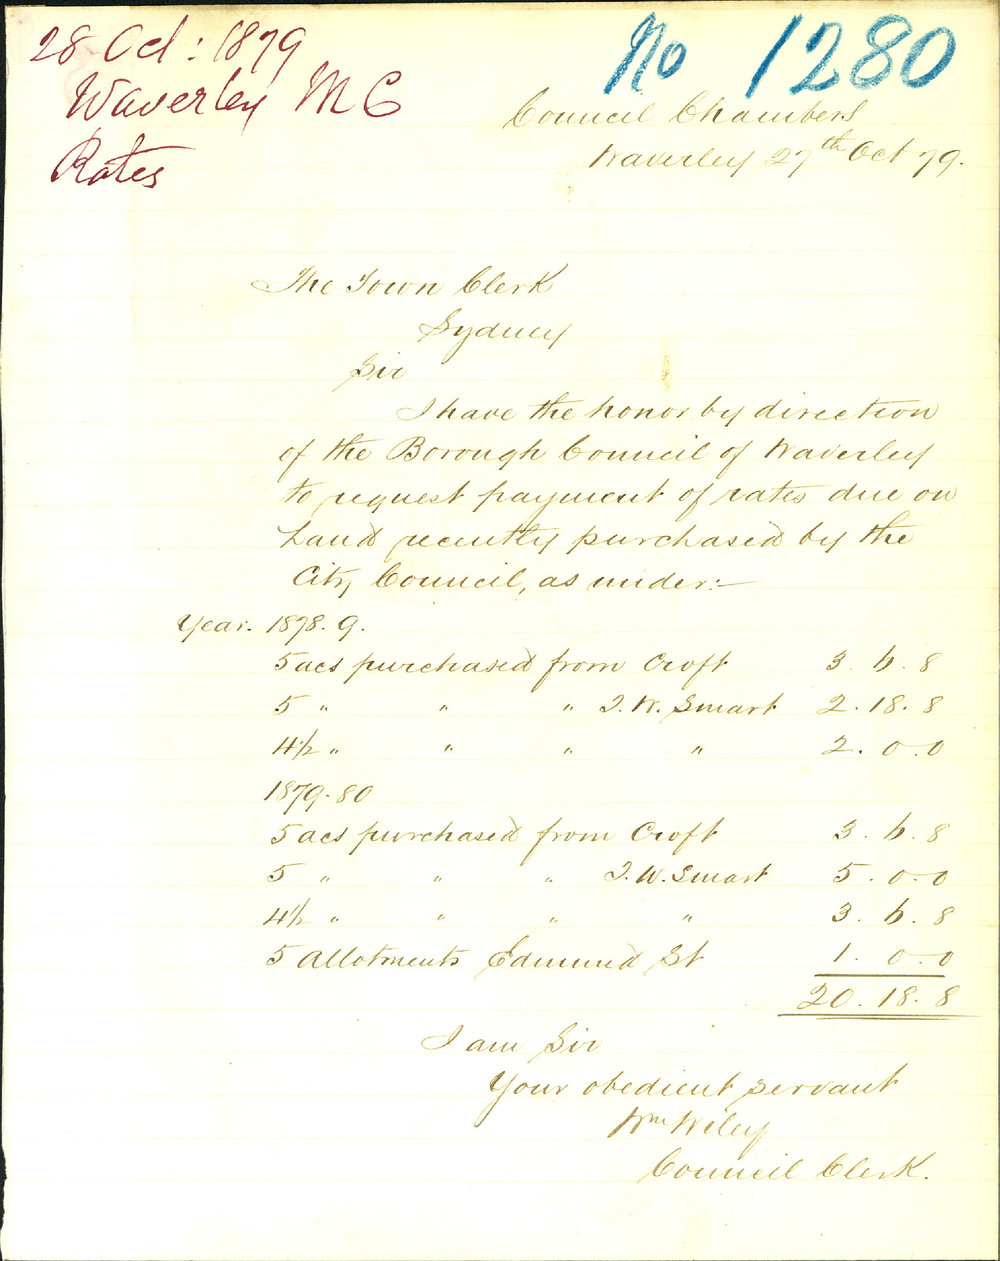 28 Oct: 1879
Waverley M C
Rates
No 1280
Council Chambers
Waverley 27th Oct 79.
The Town Clerk
Sydney
Sir
I have the honor by direction
of the Borough Council of Waverley
to request payment of rates due on
Land recently purchased by the
City Council, as under:—
Year. 1878.9.
5 acs purchased from Croft 3. 6. 8
5 " " " T. W. Smart 2. 18. 8
4 1/2 " " " " 2. 0. 0
1879-80
5 acs purchased from Croft 3. 6. 8
5 " " " T. W. Smart 5. 0. 0
4 1/2 " " " " 3. 6. 8
5 Allotments Edmund St 1. 0. 0
20. 18. 8
I am Sir
Your obedient servant
Wm Wiley
Council Clerk.